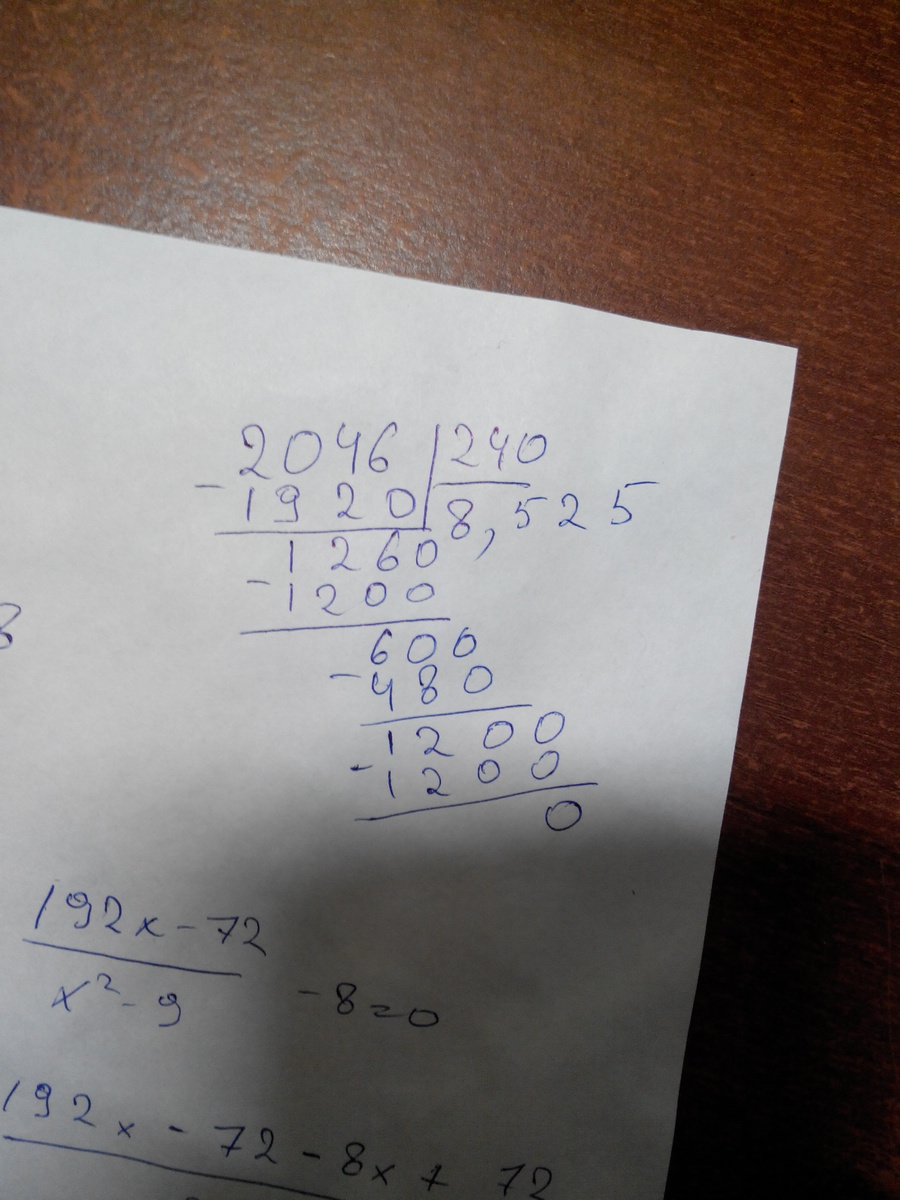 2046 240
-1920 8,525
1260
-1200
600
-480
1200
-1200
0
192x-72
x²-9 -8=0
192x-72-8x+72